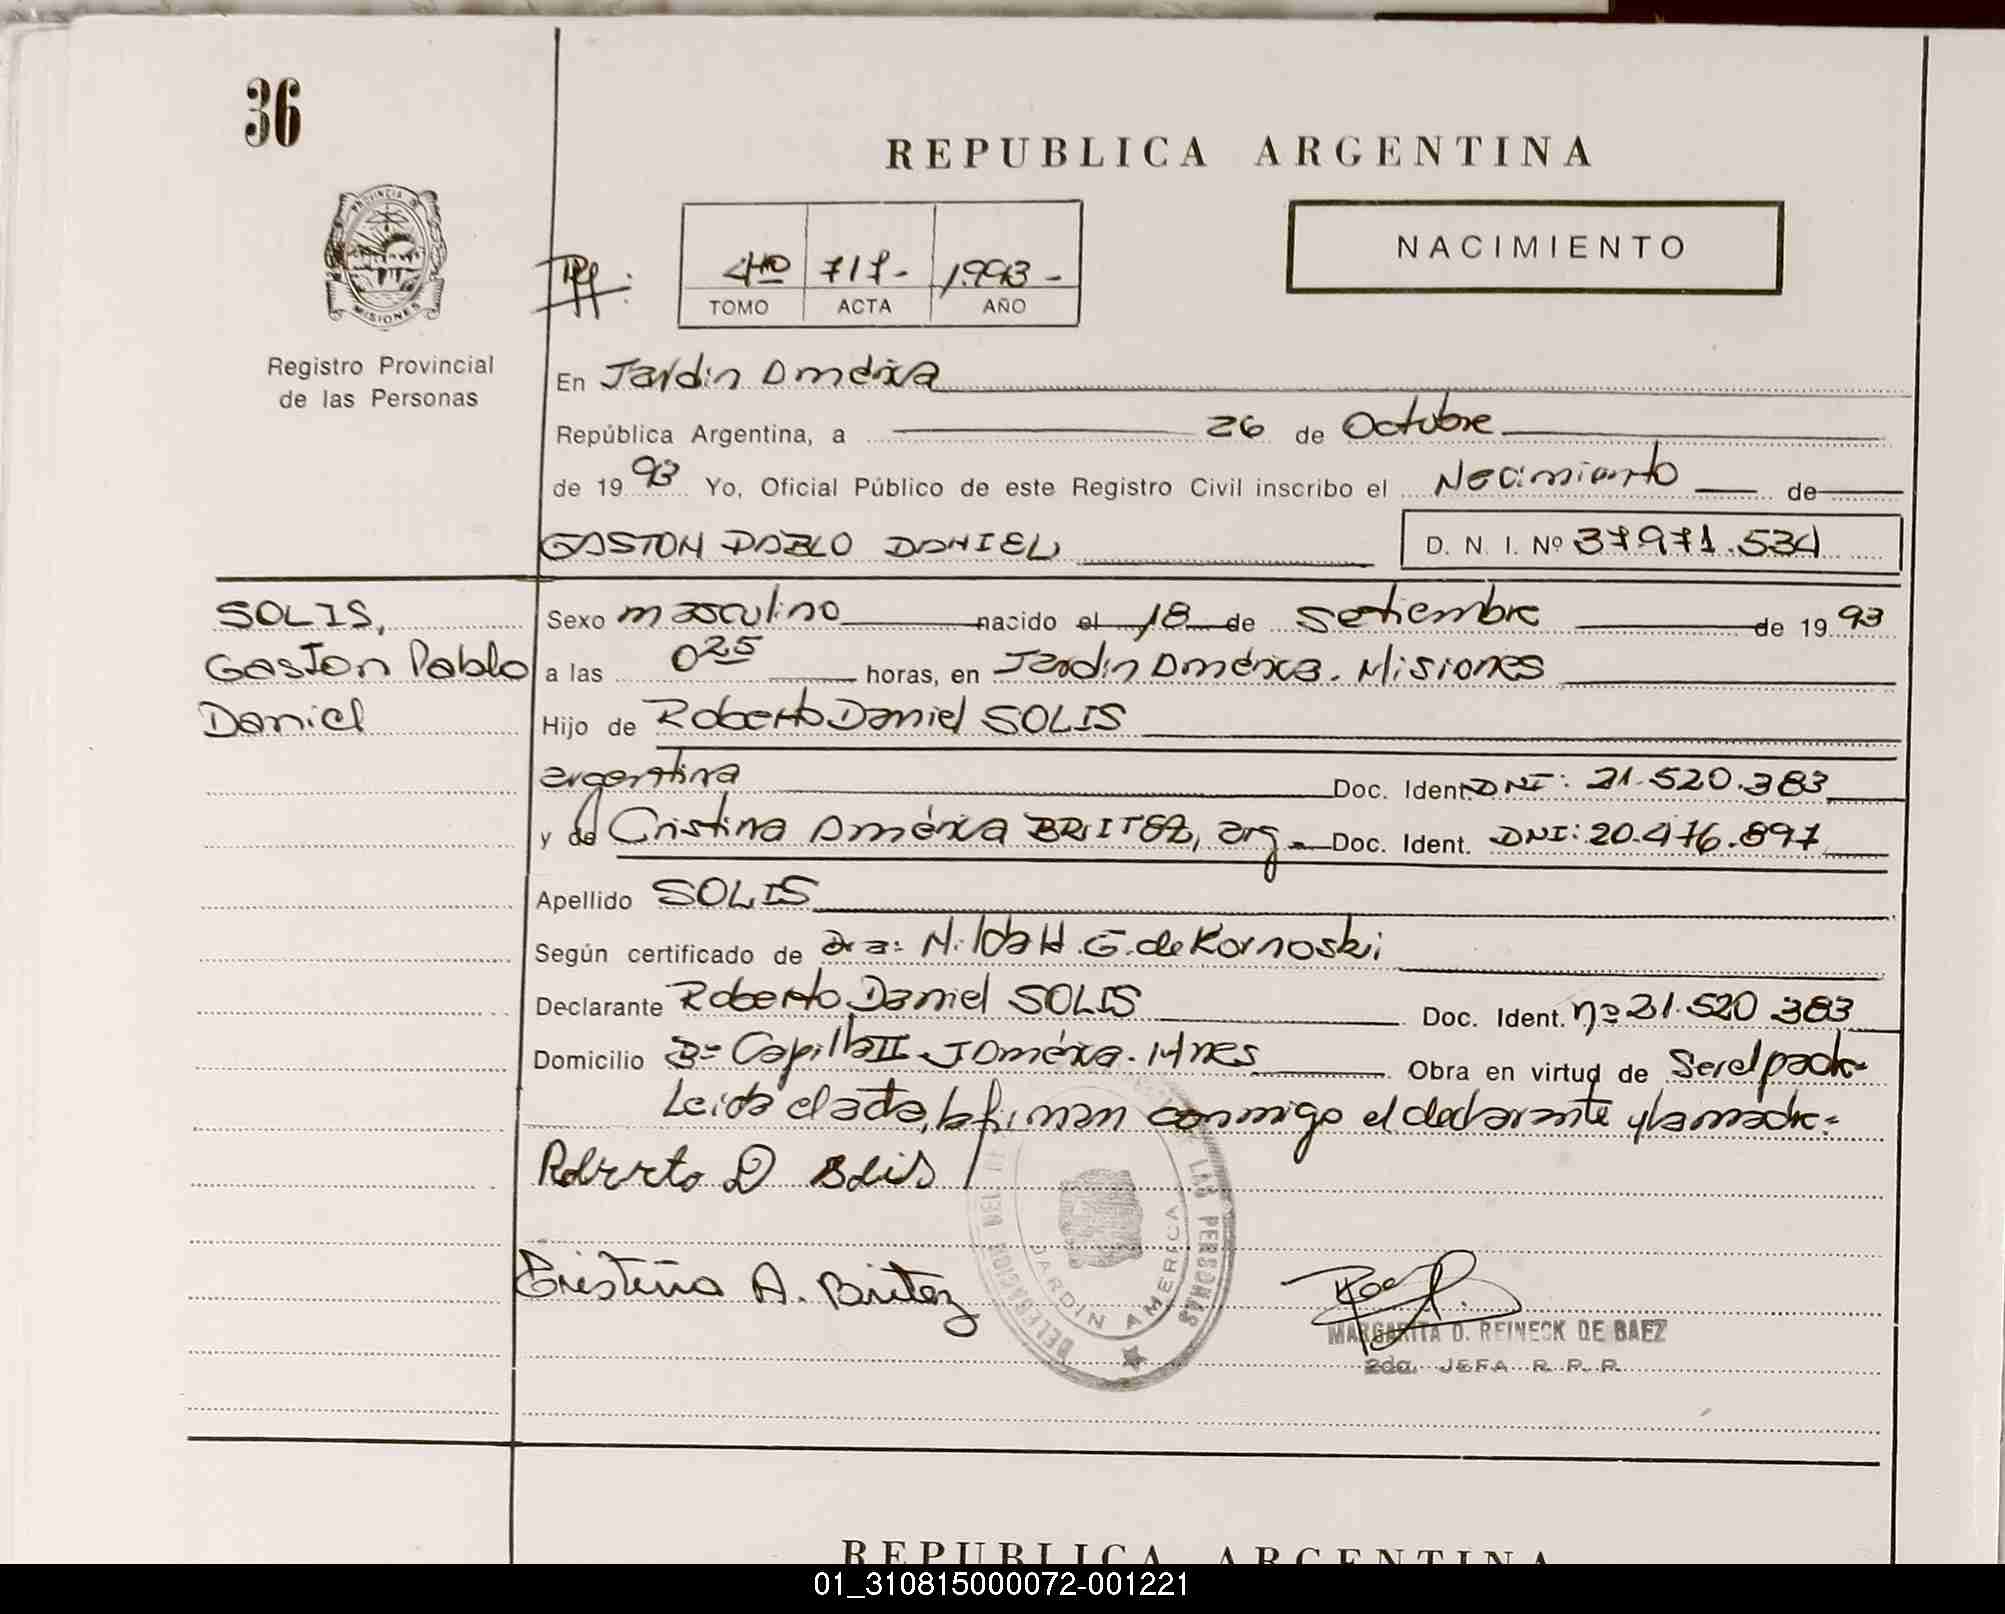 36
REPUBLICA ARGENTINA
NACIMIENTO
PROVINCIA D
MISIONES
Registro Provincial
de las Personas
4to 717- 1.993-
TOMO ACTA AÑO
En Jardin America
República Argentina, a 26 de Octubre
de 1993 Yo, Oficial Público de este Registro Civil inscribo el Nacimiento de
GASTON PABLO DANIEL D. N. I. Nº 37.971.534
SOLIS,
Gaston Pablo
Daniel
Sexo masculino nacido el 18 de Setiembre de 1993
a las 025 horas, en Jardin América. Misiones
Hijo de Roberto Daniel SOLIS
argentina Doc. Ident. DNI: 21.520.383
y de Cristina América BRITEZ, arg. Doc. Ident. DNI: 20.476.897
Apellido SOLIS
Según certificado de Dra: Nilda H. G. de Kornoski
Declarante Roberto Daniel SOLIS Doc. Ident. nº 21.520 383
Domicilio Bº Capilla II J América. Mnes Obra en virtud de Ser el padre
Leida el acta, la firman conmigo el declarante y la madre=
Roberto D Solis
Cristina A. Britez
DELEGACION DEL RE LAS PERSONAS
JARDIN AMERICA
MARGARITA D. REINECK DE BAEZ
2da. JEFA R. P. P.
REPUBLICA ARGENTINA
01_310815000072-001221